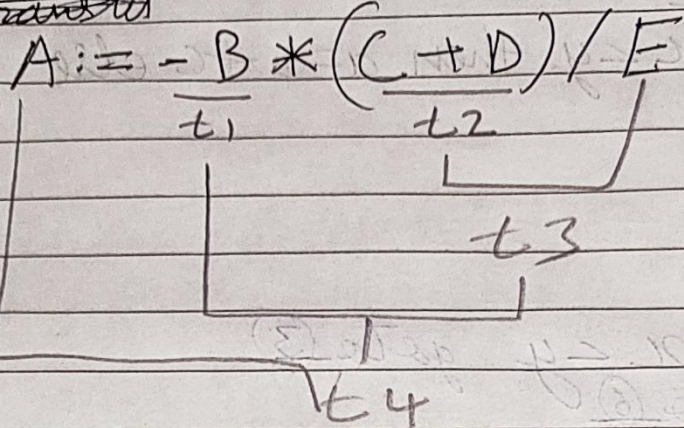 A := - B * (C + D) / E
t1 t2
t3
t4